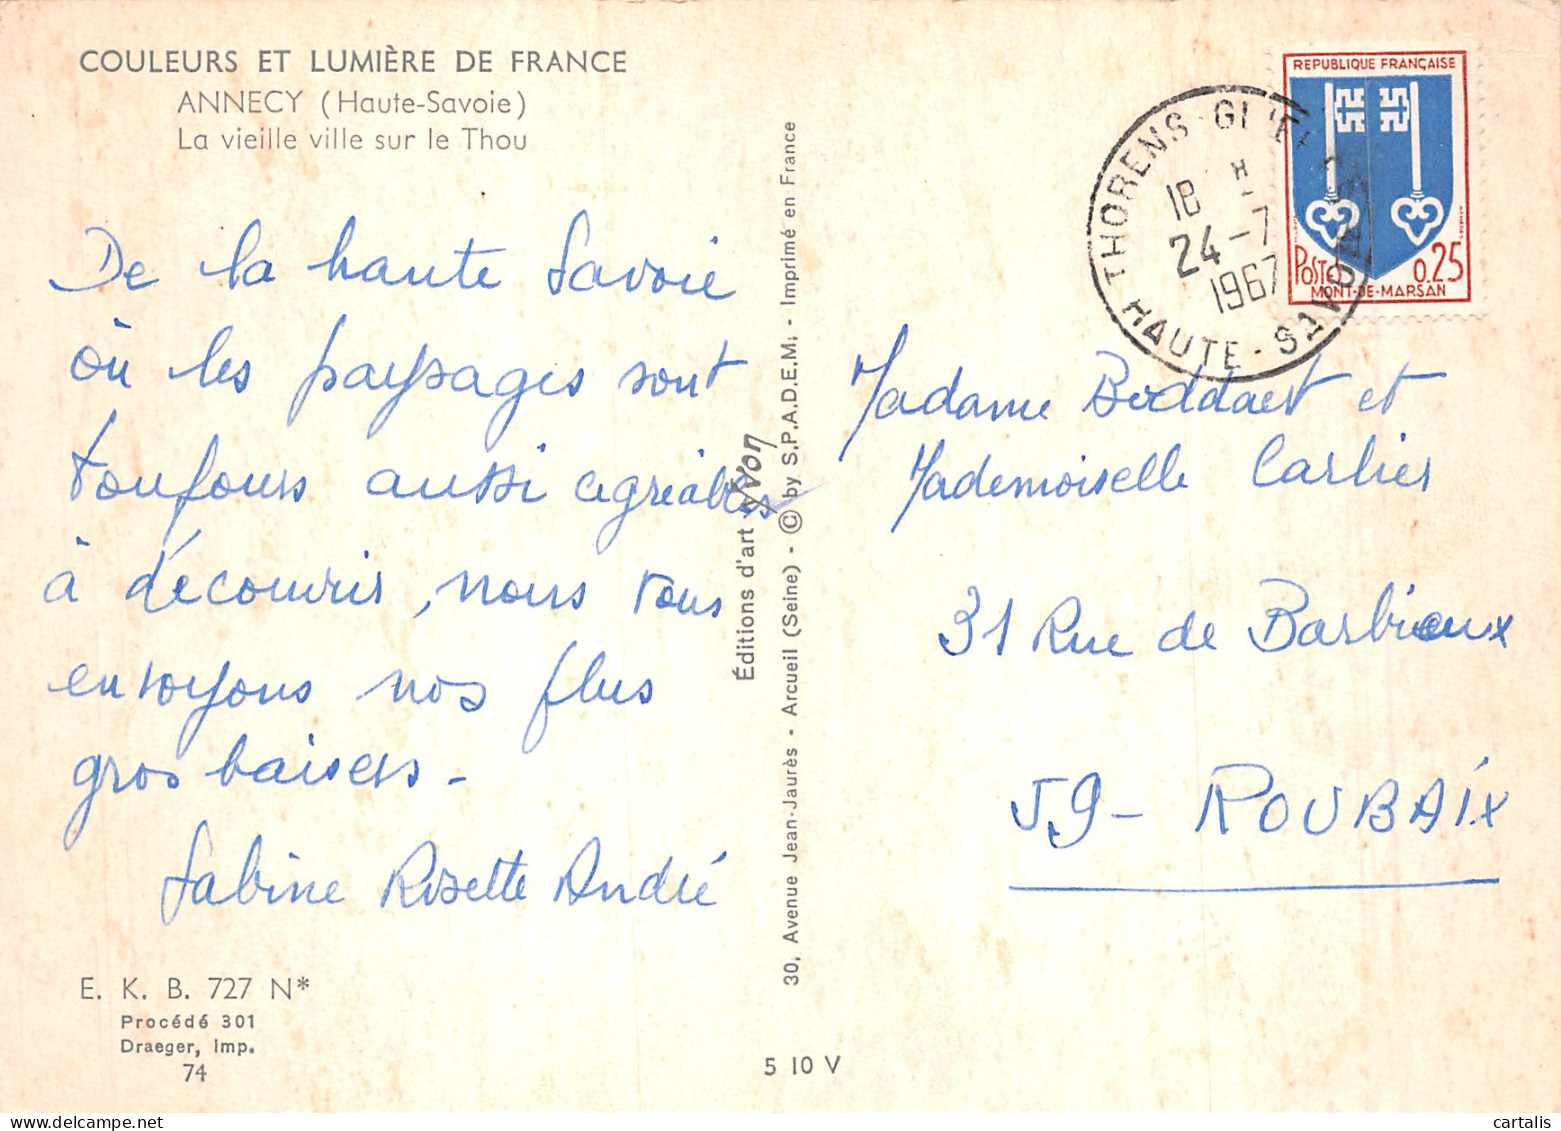 COULEURS ET LUMIÈRE DE FRANCE
ANNECY (Haute-Savoie)
La vieille ville sur le Thou
De la haute Savoie
où les paysages sont
toujours aussi agréables
à découvrir, nous vous
envoyons nos plus
gros baisers -
Sabine Rosette André
E. K. B. 727 N*
Procédé 301
Draeger, Imp.
74
Éditions d'art Yvon
30, Avenue Jean-Jaurès - Arcueil (Seine) - © by S.P.A.D.E.M. - Imprimé en France
5 10 V
THORENS-
18 H
24-7
1967
HAUTE-SAVOIE
REPUBLIQUE FRANÇAISE
POSTES
0.25
MONT-DE-MARSAN
Madame Boddaert et
Mademoiselle Carlier
31 Rue de Barbieux
59 - ROUBAIX
cartalis